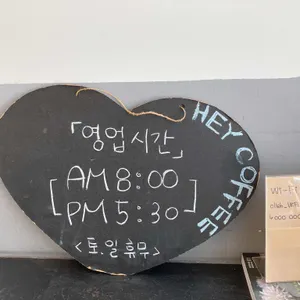 「영업시간」
AM 8:00
PM 5:30
<토.일 휴무>
HEY COFFEE
WI-FI